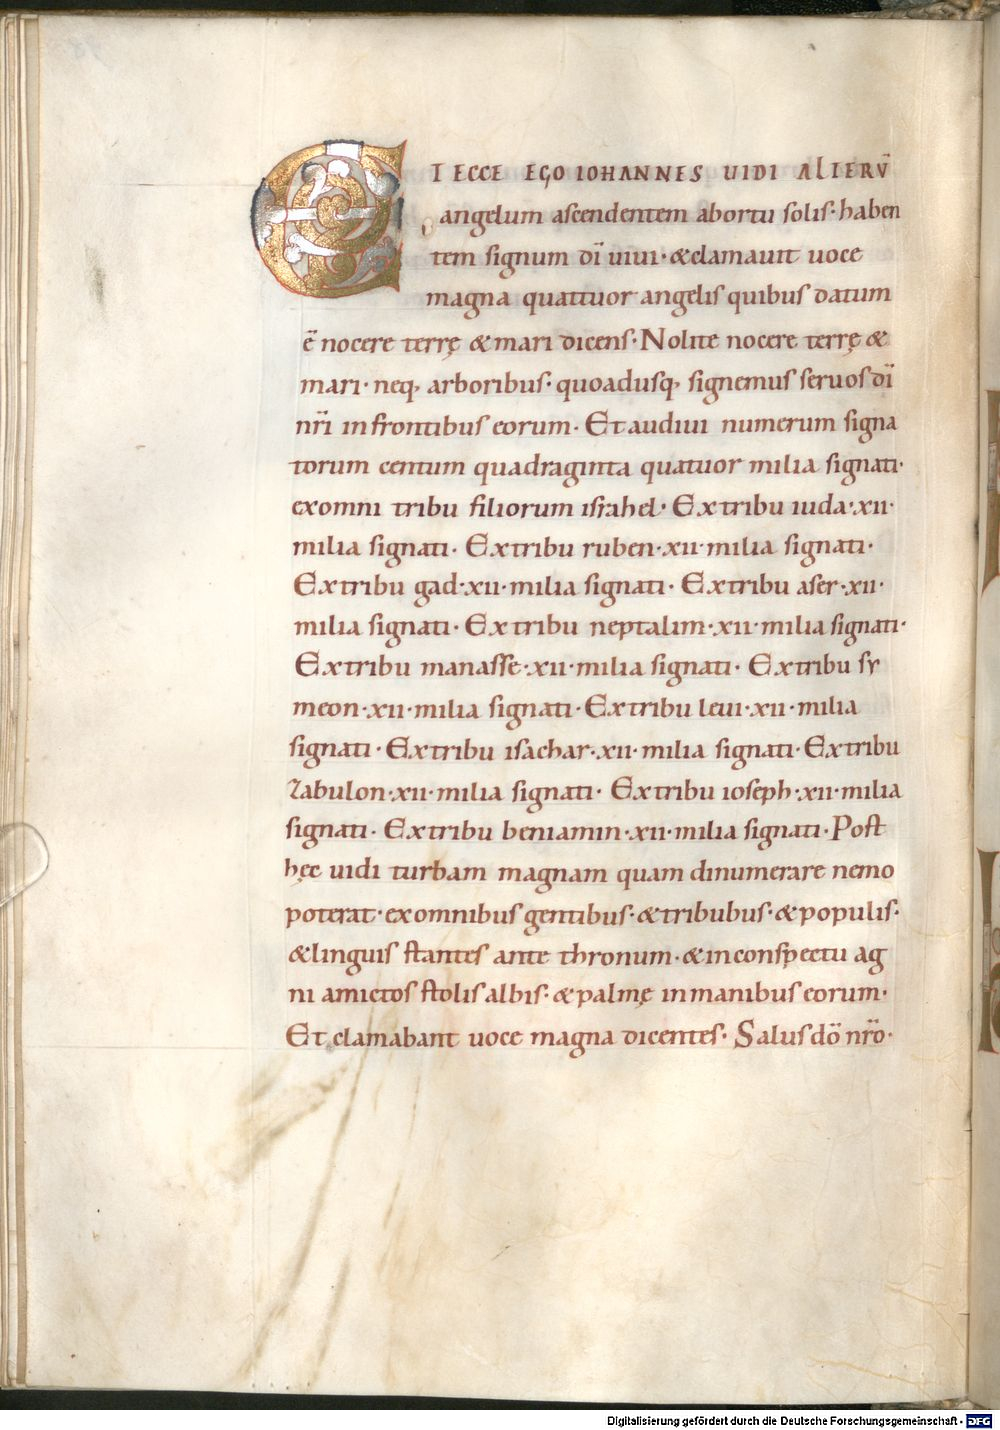 ET ECCE EGO IOHANNES UIDI ALTERŪ
angelum ascendentem abortu solis· haben
tem signum dī uiui· &clamauit uoce
magna quattuor angelis quibus datum
ē nocere terrę & mari dicens· Nolite nocere terrę &
mari· neq; arboribus· quoadusq; signemus seruos dī
nr̄i infrontibus eorum· Et audiui numerum signa
torum centum quadraginta quatuor milia signati·
exomni tribu filiorum israhel· Extribu iuda·xii·
milia signati· Extribu ruben·xii·milia signati·
Extribu gad·xii·milia signati· Extribu aser·xii·
milia signati· Extribu neptalim·xii·milia signati·
Extribu manasse·xii·milia signati· Extribu sy
meon·xii·milia signati· Extribu leui·xii·milia
signati· Extribu isachar·xii·milia signati· Extribu
zabulon·xii·milia signati· Extribu ioseph·xii·milia
signati· Extribu beniamin·xii·milia signati· Post
hęc uidi turbam magnam quam dinumerare nemo
poterat· exomnibus gentibus· &tribubus· &populis·
&linguis stantes ante thronum· &inconspectu ag
ni amictos stolis albis· &palmę inmanibus eorum·
Et clamabant uoce magna dicentes· Salus dō nr̄o·
Digitalisierung gefördert durch die Deutsche Forschungsgemeinschaft - DFG